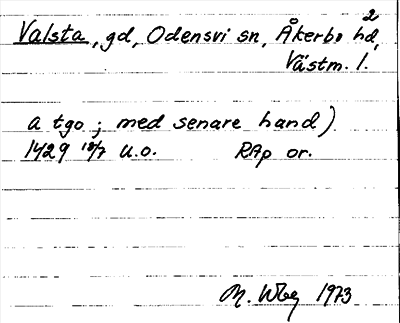 Valsta, gd, Odensvi sn, Åkerbo hd, 2
Västm. l.
a tgo ; med senare hand)
1429 18/7 u.o. RAp or.
M. Wbg 1973